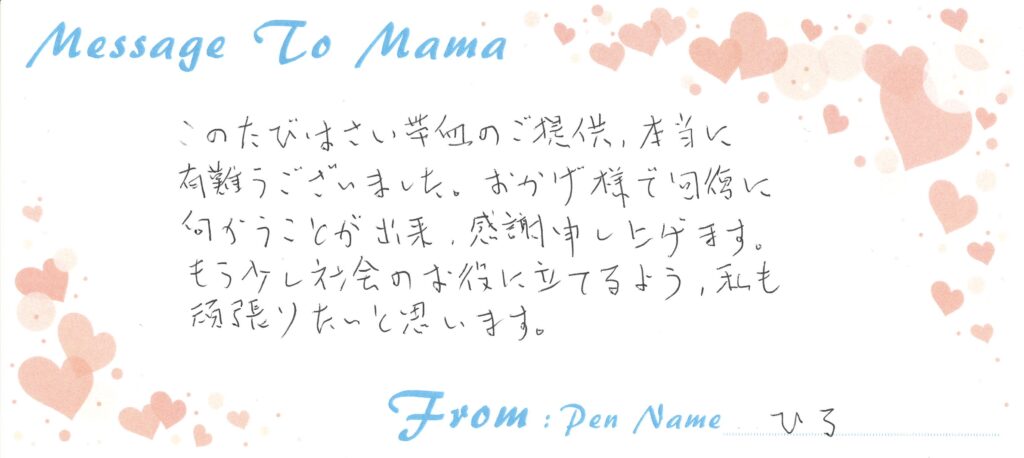 Message To Mama
このたびはさい帯血のご提供,本当に
有難うございました。おかげ様で回復に
向かうことが出来,感謝申し上げます。
もう少し社会のお役に立てるよう,私も
頑張りたいと思います。
From : Pen Name ひろ